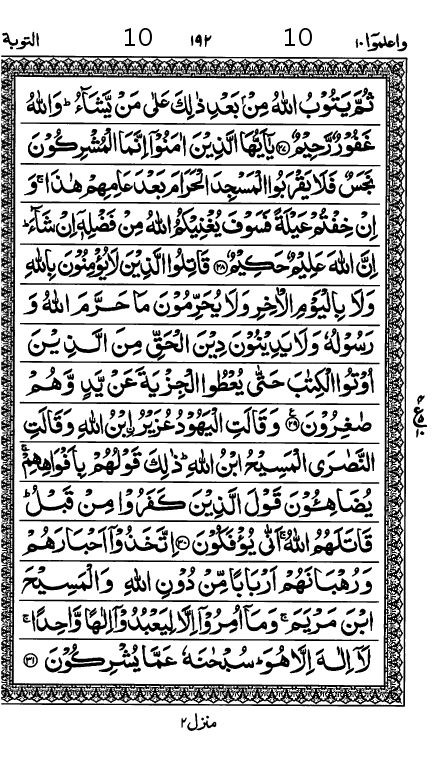 واعلموٓا ١٠ 10 ١٩٢ 10 التوبة
ثُمَّ يَتُوْبُ اللّٰهُ مِنْۢ بَعْدِ ذٰلِكَ عَلٰى مَنْ يَّشَآءُ ؕ وَاللّٰهُ
غَفُوْرٌ رَّحِيْمٌ ﴿۲۷﴾ يٰۤاَيُّهَا الَّذِيْنَ اٰمَنُوْۤا اِنَّمَا الْمُشْرِكُوْنَ
نَجَسٌ فَلَا يَقْرَبُوا الْمَسْجِدَ الْحَرَامَ بَعْدَ عَامِهِمْ هٰذَا ۚ وَ
اِنْ خِفْتُمْ عَيْلَةً فَسَوْفَ يُغْنِيْكُمُ اللّٰهُ مِنْ فَضْلِهٖۤ اِنْ شَآءَ ؕ
اِنَّ اللّٰهَ عَلِيْمٌ حَكِيْمٌ ﴿۲۸﴾ قَاتِلُوا الَّذِيْنَ لَا يُؤْمِنُوْنَ بِاللّٰهِ
وَلَا بِالْيَوْمِ الْاٰخِرِ وَلَا يُحَرِّمُوْنَ مَا حَرَّمَ اللّٰهُ وَ
رَسُوْلُهٗ وَلَا يَدِيْنُوْنَ دِيْنَ الْحَقِّ مِنَ الَّذِيْنَ
اُوْتُوا الْكِتٰبَ حَتّٰى يُعْطُوا الْجِزْيَةَ عَنْ يَّدٍ وَّهُمْ
صٰغِرُوْنَ ﴿۲۹﴾ وَقَالَتِ الْيَهُوْدُ عُزَيْرُ ۨابْنُ اللّٰهِ وَقَالَتِ
النَّصٰرَى الْمَسِيْحُ ابْنُ اللّٰهِ ؕ ذٰلِكَ قَوْلُهُمْ بِاَفْوَاهِهِمْ ۚ
يُضَاهِـُٔوْنَ قَوْلَ الَّذِيْنَ كَفَرُوْا مِنْ قَبْلُ ؕ
قَاتَلَهُمُ اللّٰهُ ۚ اَنّٰى يُؤْفَكُوْنَ ﴿۳۰﴾ اِتَّخَذُوْۤا اَحْبَارَهُمْ
وَرُهْبَانَهُمْ اَرْبَابًا مِّنْ دُوْنِ اللّٰهِ وَالْمَسِيْحَ
ابْنَ مَرْيَمَ ۚ وَمَاۤ اُمِرُوْۤا اِلَّا لِيَعْبُدُوْۤا اِلٰهًا وَّاحِدًا ۚ
لَاۤ اِلٰهَ اِلَّا هُوَ ؕ سُبْحٰنَهٗ عَمَّا يُشْرِكُوْنَ ﴿۳۱﴾
ع
١٠
منزل ٢